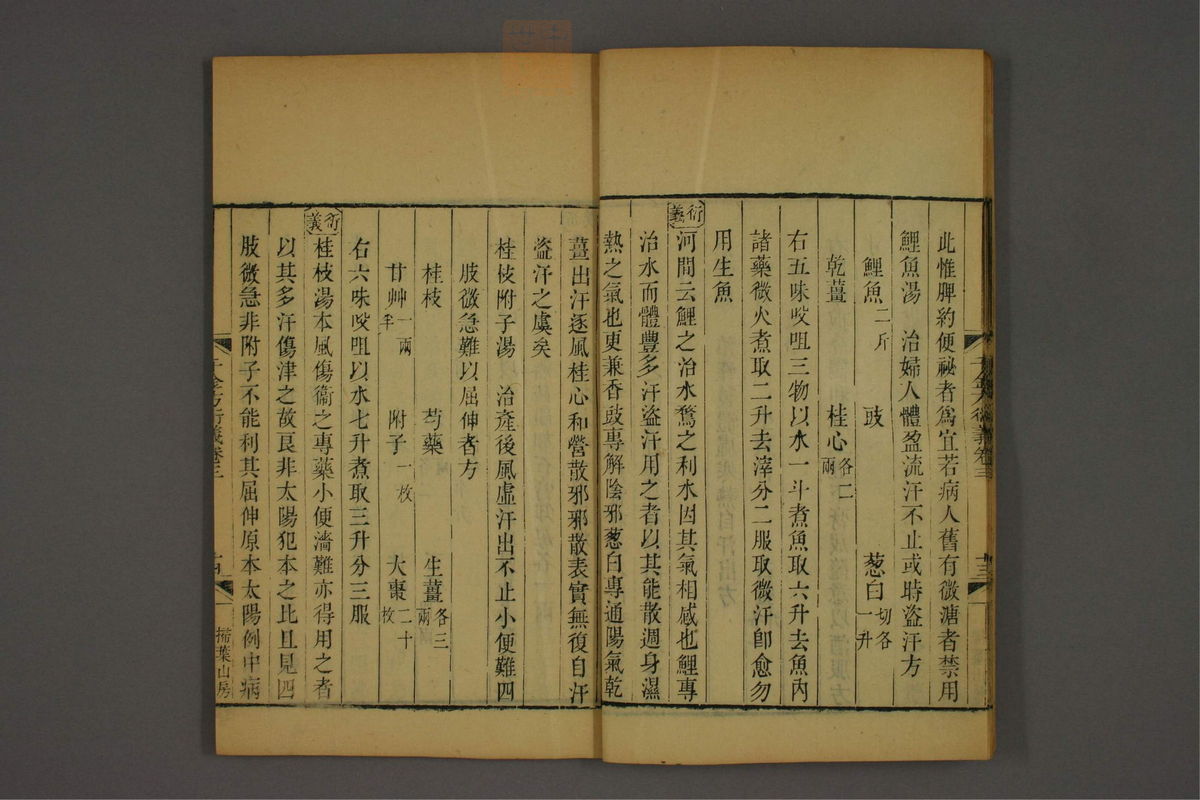 此惟脾約便祕者爲宜若病人舊有微溏者禁用
鯉魚湯 治婦人體盈流汗不止或時盜汗方
鯉魚二斤 豉 葱白切各一升
乾薑 桂心各二兩
右五味㕮咀三物以水一斗煮魚取六升去魚內
諸藥微火煮取二升去滓分二服取微汗卽愈勿
用生魚
衍義
河間云鯉之治水鶩之利水因其氣相感也鯉專
治水而體豐多汗盜汗用之者以其能散週身濕
熱之氣也更兼香豉專解陰邪葱白專通陽氣乾
薑出汗逐風桂心和營散邪邪散表實無復自汗
盜汗之虞矣
桂枝附子湯 治產後風虛汗出不止小便難四
肢微急難以屈伸者方
桂枝 芍藥 生薑各三兩
甘艸一兩半 附子一枚 大棗二十枚
右六味㕮咀以水七升煮取三升分三服
衍義
桂枝湯本風傷衞之專藥小便濇難亦得用之者
以其多汗傷津之故良非太陽犯本之比且見四
肢微急非附子不能利其屈伸原本太陽例中病
千金方衍義卷三
十四
掃葉山房